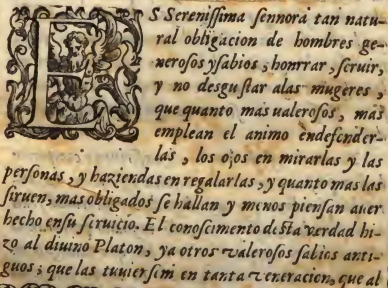 ES Sereniſſima ſennora tan natu-
ral obligacion de hombres ge-
neroſos yſabios, honrrar, ſeruir,
y no deſguſtar alas mugeres,
que quanto mas ualeroſos, mas
emplean el animo endefender-
las, los ojos en mirarlas y las
perſonas, y haziendas en regalarlas, y quanto mas las
ſiruen, mas obligados ſe hallan y menos pienſan auer
hecho enſu ſeruicio. El conoſcimento deſta verdad hi-
zo al diuino Platon, ya otros valeroſos ſabios anti-
guos; que las tuuierſim en tanta veneracion, que al